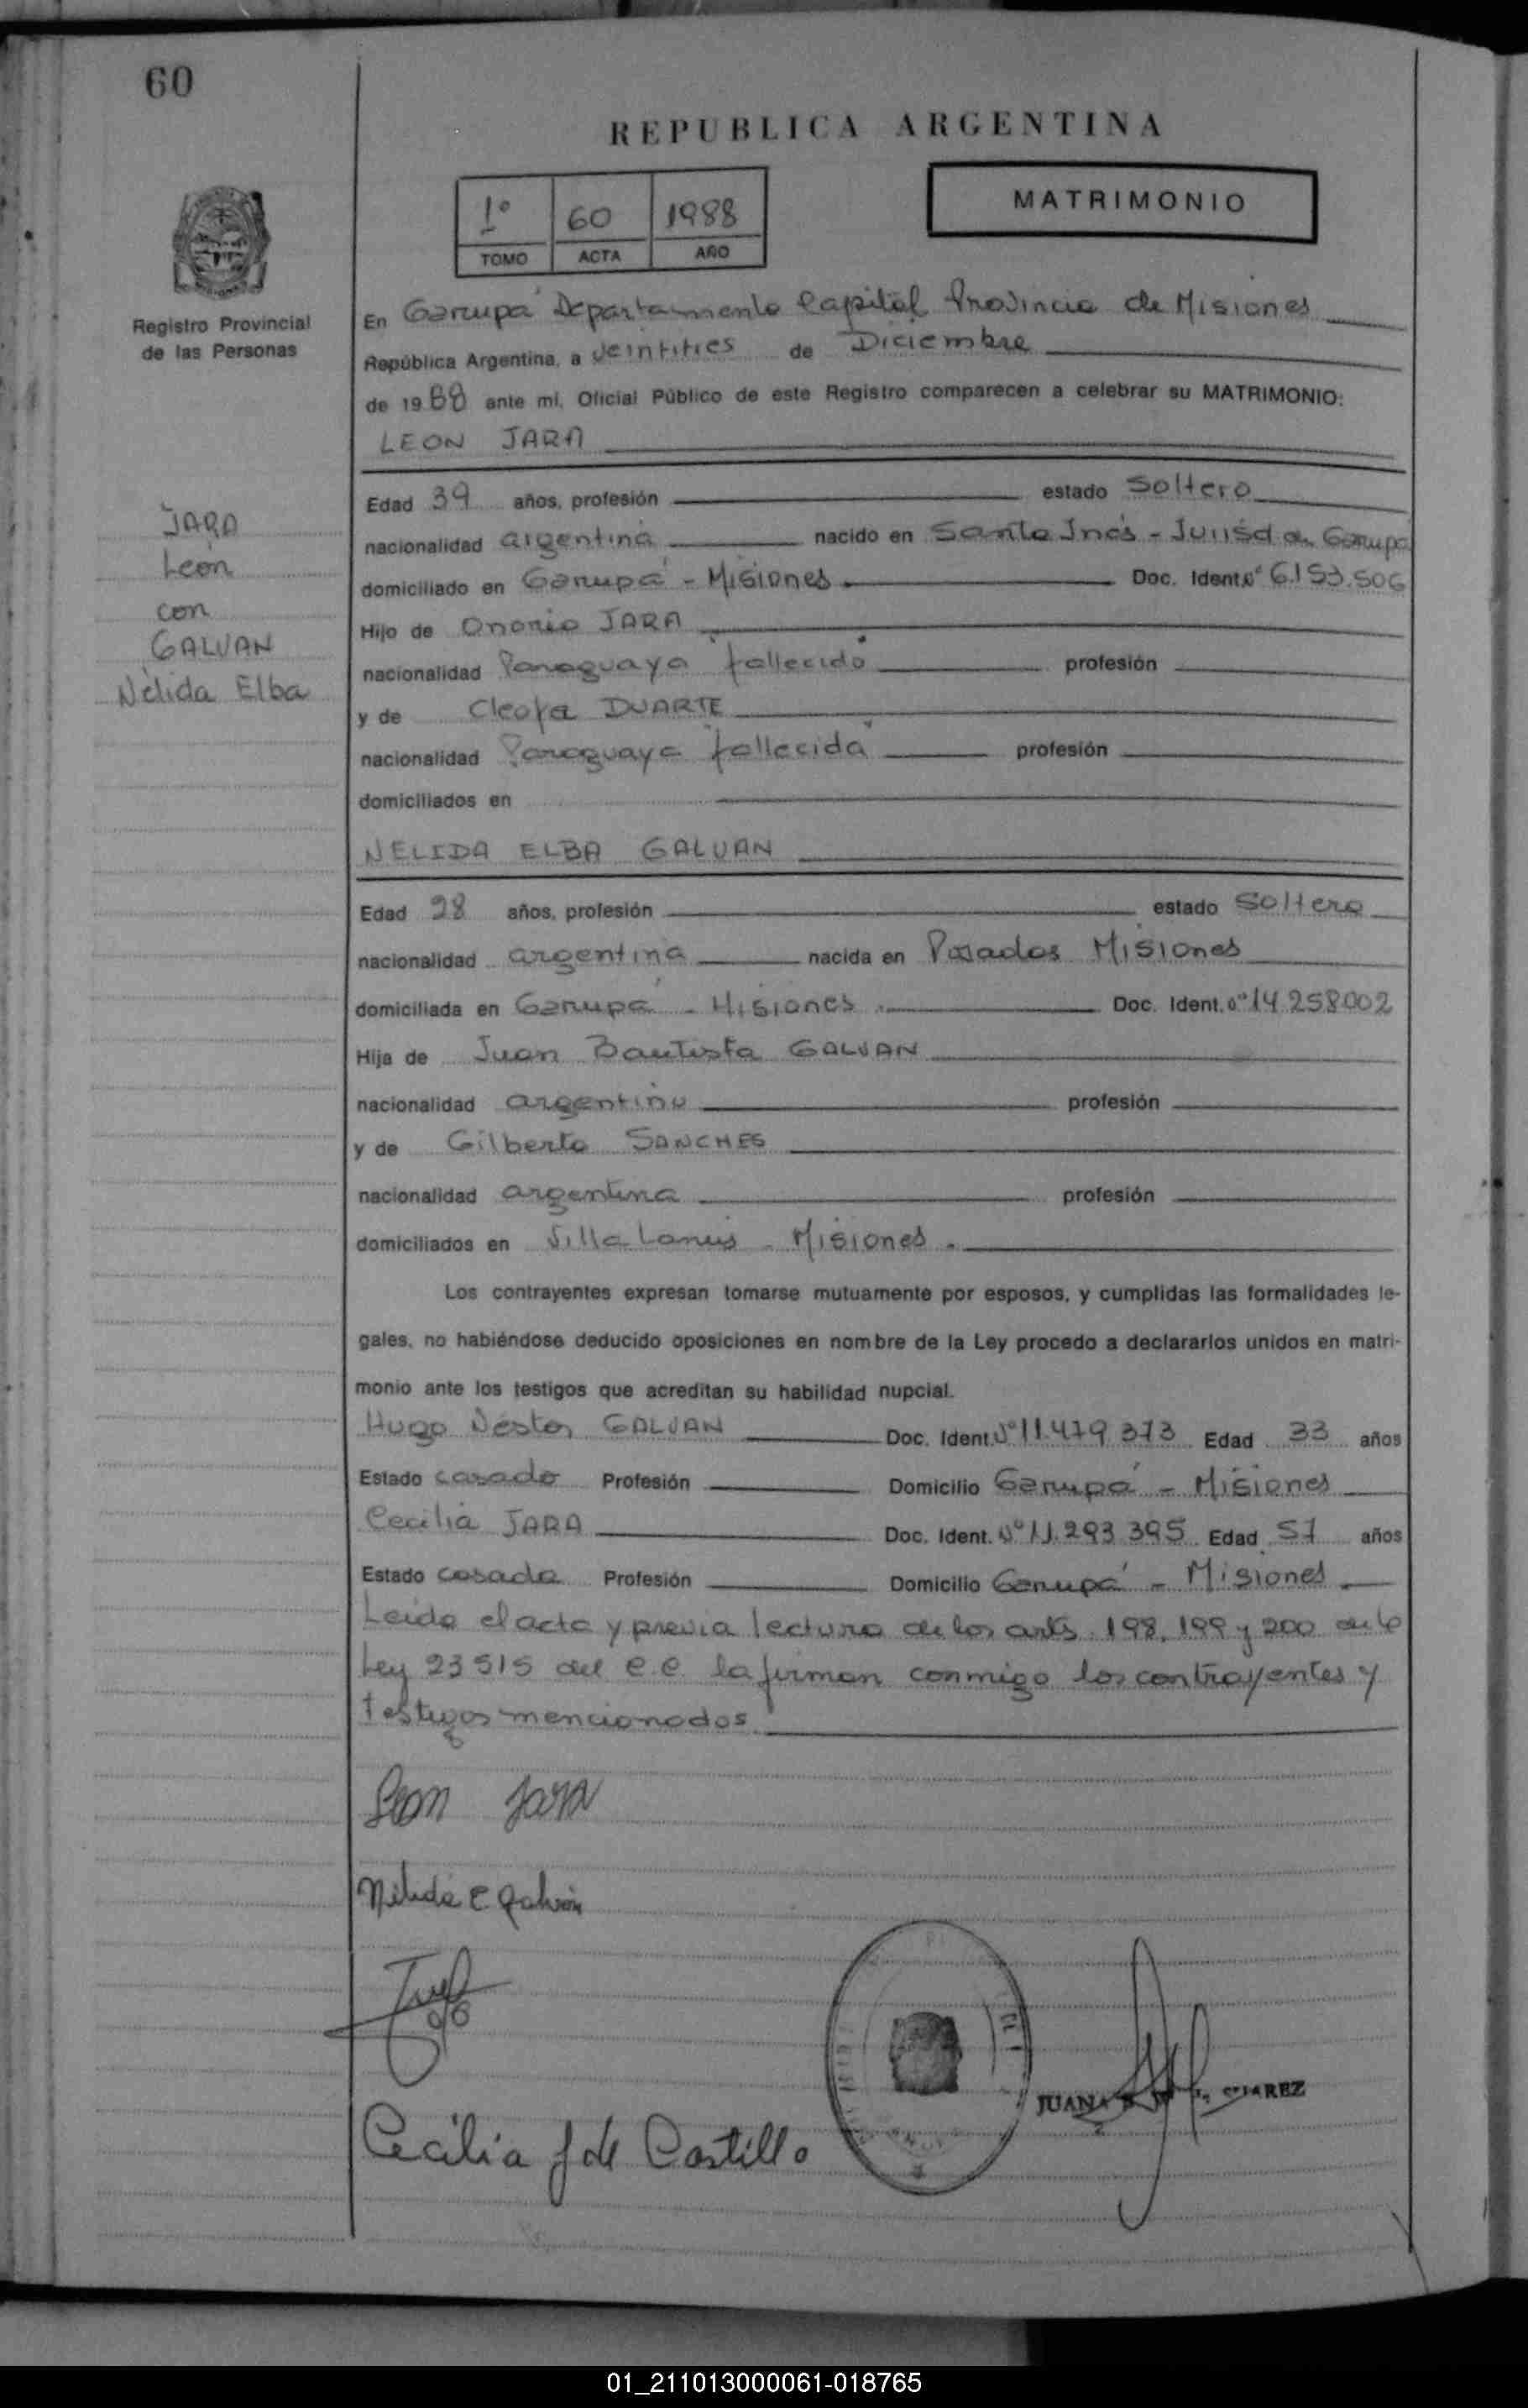 60
REPUBLICA ARGENTINA
1° 60 1988
TOMO ACTA AÑO
MATRIMONIO
Registro Provincial
de las Personas
En Garupá Departamento Capital Provincia de Misiones
República Argentina, a veintitres de Diciembre
de 1988 ante mí, Oficial Público de este Registro comparecen a celebrar su MATRIMONIO:
LEON JARA
Edad 39 años, profesión estado Soltero
nacionalidad argentina nacido en Santa Inés - Jurisd de Garupá
domiciliado en Garupá - Misiones. Doc. Ident. N° 6.153.506
Hijo de Onorio JARA
nacionalidad Paraguaya "fallecido" profesión
y de Cleofa DUARTE
nacionalidad Paraguaya "fallecida" profesión
domiciliados en
JARA
León
con
GALVAN
Nélida Elba
NELIDA ELBA GALVAN
Edad 28 años, profesión estado Soltera
nacionalidad argentina nacida en Posadas Misiones
domiciliada en Garupá - Misiones. Doc. Ident. N° 14.258.002
Hija de Juan Bautista GALVAN
nacionalidad argentino profesión
y de Gilberta SANCHES
nacionalidad argentina profesión
domiciliados en Villa Lanus - Misiones.
Los contrayentes expresan tomarse mutuamente por esposos, y cumplidas las formalidades le-
gales, no habiéndose deducido oposiciones en nombre de la Ley procedo a declararlos unidos en matri-
monio ante los testigos que acreditan su habilidad nupcial.
Hugo Néstor GALVAN Doc. Ident. N° 11.479.373 Edad 33 años
Estado casado Profesión Domicilio Garupá - Misiones
Cecilia JARA Doc. Ident. N° 11.293.395 Edad 57 años
Estado casada Profesión Domicilio Garupá - Misiones
Leída el acta y previa lectura de los arts. 198, 199 y 200 de la
Ley 23515 del C.C. la firman conmigo los contrayentes y
testigos mencionados.
Leon Jara
Nélida E Galván
Cecilia J de Castillo
JUANA SUAREZ
01_211013000061-018765